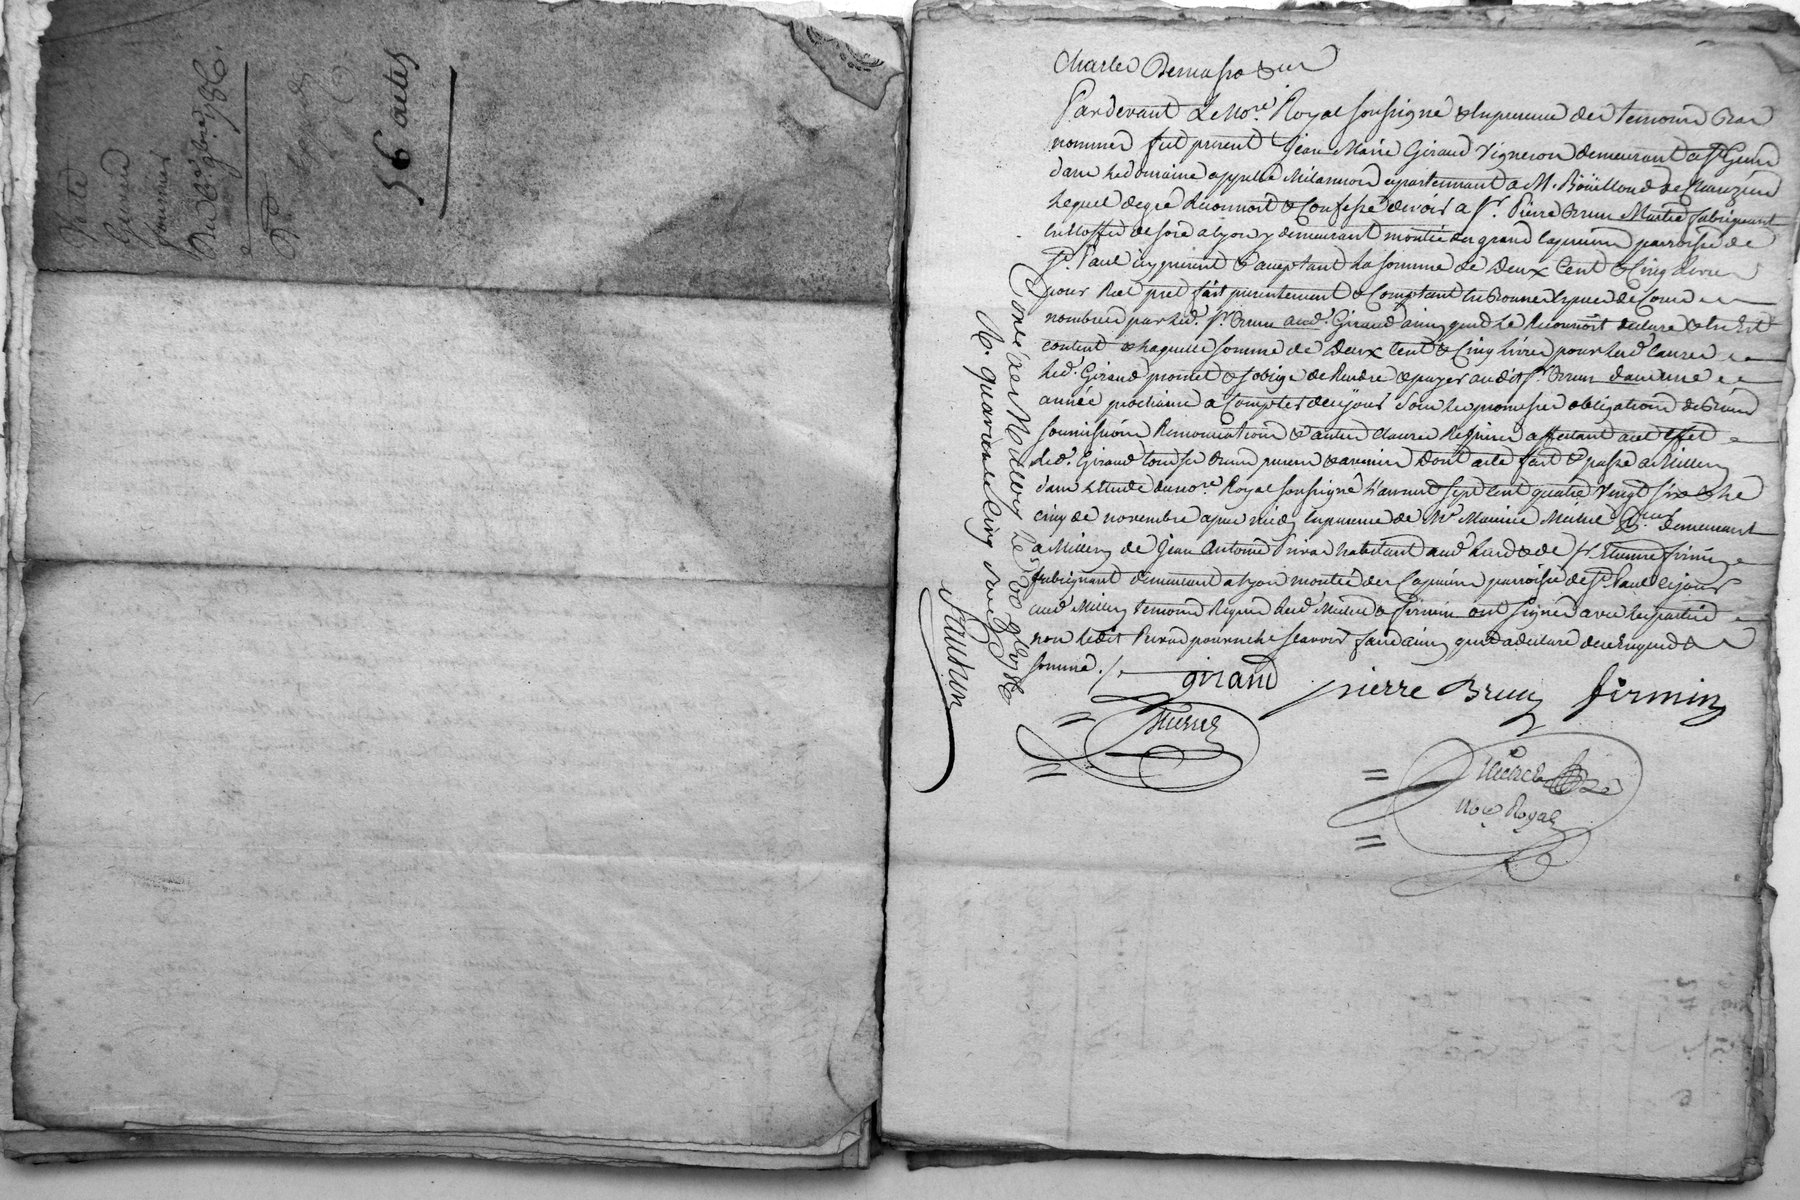 Vente
Girard
fournier
Du 8e 9bre 1786.
56 actes
Charles Demasso
Pardevant Le No.re Royal soussigné & en presence des temoins bas
nommés fut present Jean Marie Giraud Vigneron demeurant a St Genis
dans le domaine appellé Milannois apartennant a M. Boüilloud de Chanzieu
lequel de gré Reconnoit & Confesse devoir a Sr. Pierre Brun Maitre fabriquant
en etoffes de soie a Lyon y demeurant montée des grands Capucins parroisse de
St. Paul icy present & acceptant la somme de Deux Cent & Cinq livres
pour Reel pret fait presentement & Comptant en bonnes especes de Cours
nombrées par led. Sr. Brun aud. Giraud ainsy que led. le Reconnoit declare & en Est
content & laquelle somme de Deux Cent & Cinq livres pour lesd. causes
led. Giraud promet & s'oblige de Rendre & payer audit Sr. Brun dans une
année prochaine a Compter de ce jour sous les promesses obligations de biens
soumissions Renonciations & autres clauses Requises affectant a cet effet
led. Giraud tous ses biens presens & avenirs Dont acte fait & passé a Millery
dans l'etude du no.re Royal soussigné L'an mil sept cent quatre vingt six & le
cinq de novembre apres midy en presence de Me Maurice demeurant
a Millery de Jean Antoine Privat habitant aud. lieu & de Sr. Etienne firmin
fabriquant demeurant a Lyon montée des Capucins parroisse de St. Paul ce jour
aud. Millery temoins Requis lesd. & firmin ont signés avec les parties
non ledit Privat pour ne le scavoir faire ainsy qu'il a declaré de ce Enquis &
sommé ./.
girand pierre Brun firmin
No.re Royal
Coné a St Maury le 8e 9bre 1786
R. quarante cinq sous